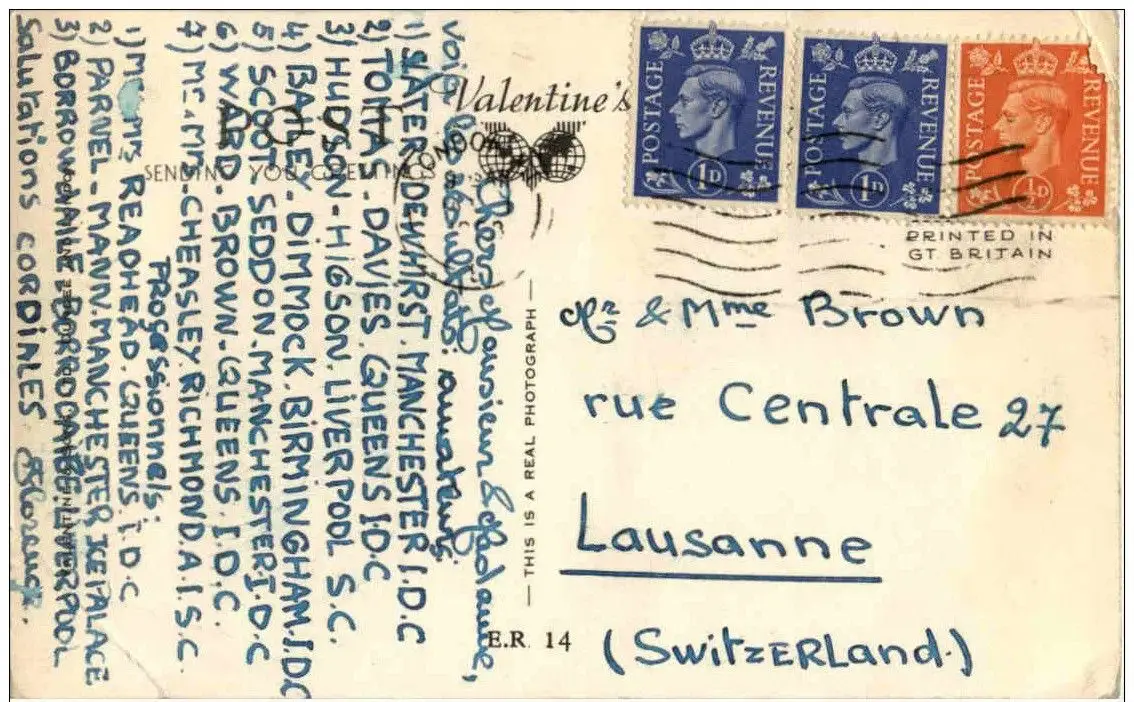 Chers Monsieur & Madame,
voici les résultats: amateurs
1) SLATER-DEWHIRST. MANCHESTER I.D.C
2) TOMAS-DAVIES. QUEENS I.D.C
3) HUDSON-HIGSON. LIVERPOOL S.C.
4) BAILEY-DIMMOCK. BIRMINGHAM. I.D.C
5) SCOOT. SEDDON. MANCHESTER I.D.C
6) WARD. BROWN. QUEENS. I.D.C.
7) Mr & Mrs CHEASLEY. RICHMOND. A.I.S.C.
Professionnels:
1) Mr & Mrs READHEAD. QUEENS. I.D.C
2) PARNEL-MANN. MANCHESTER ICE PALACE
3) LIVERPOOL
Salutations CORDIALES
Valentine's
POST
SENDING YOU GREETINGS
LONDON
— THIS IS A REAL PHOTOGRAPH —
E.R. 14
POSTAGE REVENUE 1D
POSTAGE REVENUE 1D
POSTAGE REVENUE ½D
PRINTED IN
GT BRITAIN
Mr & Mme Brown
rue Centrale 27
Lausanne
(SwitzERLand.)